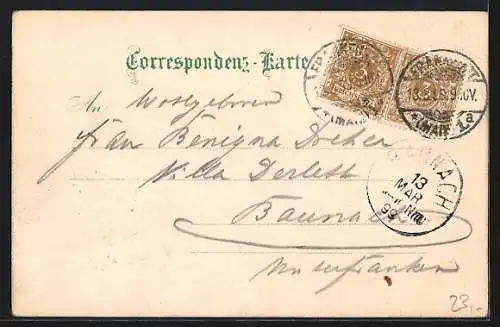 Correspondenz-Karte
An Wohlgeboren
Frau Benigna Decher
Villa Derlett
Baunach
Unterfranken
FRANKFURT
(MAIN)
FRANKFURT
13.3.99. 9-10V.
*(MAIN) 1a
BAUNACH
13
MAR
99
23,-